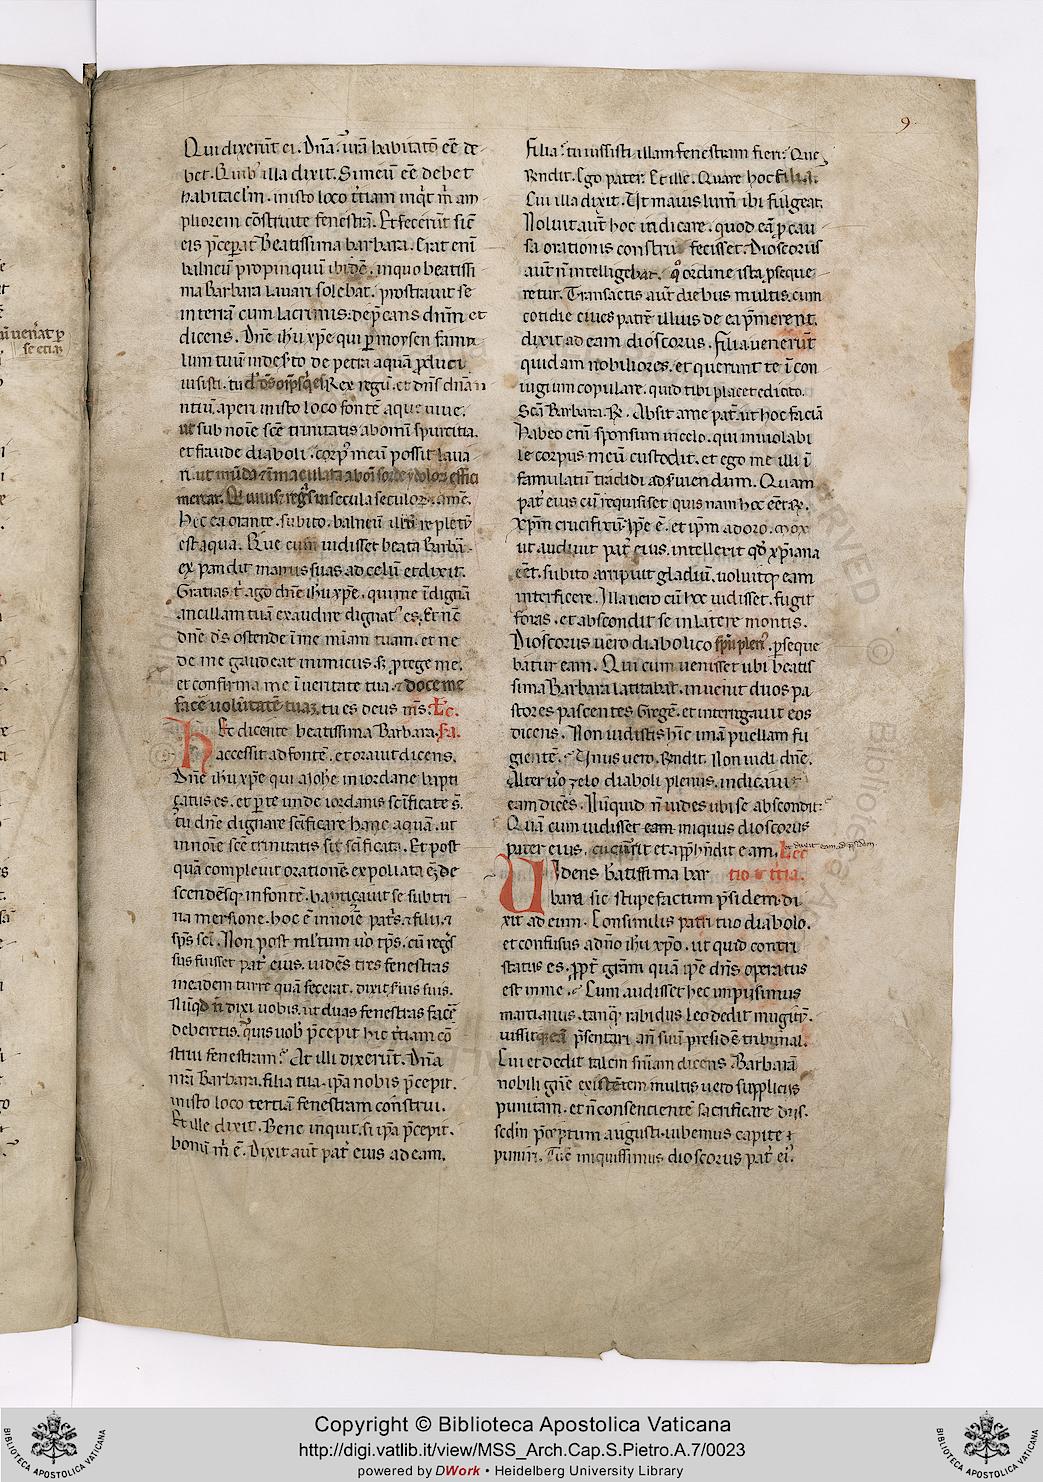 9.
Qui dixerūt ei. Dn̄a. ur̄a habitatō eē de
bet. Quib' illa dixit. Sic meū eē debet
habitaclm̄. in isto loco t̄tiam inqt m̄ am
pliorem cōstruite fenestrā. Et fecerūt sic
eis p̄ceperat beatissima barbara. Erat eni
balneū propinquū ibidē. in quo beatissi
ma Barbara lavari solebat. prostravit se
in terrā cum lacrimis. dep̄cans dn̄m et
dicens. Dn̄e ih̄u xp̄e qui p moysen famu
lum tuū
de petra aquā produci
iussisti. tu
Rex regū. et dn̄s dnān
ntiū. aperi in isto loco fontē aque vive.
ut sub noīe sc̄e trinitatis ab omī spurcitia.
et fraude diaboli. corp' meū possit lava
ri. ut mūda
mereat.
in secula seculor. amē.
Hec ea orante. subito. balneū illud repletū
est aqua. Que cum vidisset beata barbā.
expandit manus suas ad celū et dixit.
Gratias t' ago dn̄e ih̄u xp̄e. qui me īdignā
ancillam tuā exaudire dignat' es. Et nc̄
dn̄e d̄s ostende ī me mīam tuam. et ne
de me gaudeat inimicus. s; protege me.
et confirma me ī veritate tua. et doce me
facē volūtatē tuā. tu es deus m̄s. Lc.
Hec dicente beatissima Barbara.
accessit ad fontē. et oravit dicens.
Dn̄e ih̄u xp̄e qui a ioh̄e in iordane bapti
çatus es. et p te unde iordanis sc̄ificate s̄.
tu dn̄e dignare sc̄ificare hanc aquā. ut
in noīe sc̄e trinitatis sit sc̄ificata. Et post
quā complevit orationē expoliata
scendēsq; in fontē. baptiçavit se sub tri
na mersione. hoc ē in noīe patris et filii et
sp̄s sc̄i. Non post ml̄tum v̄o tp̄s. cū regs
sus fuisset pat' eius. vidēs tres fenestras
in eadem turre quā fecerat. dixit s'vis suis.
Nūqd n̄ dixi vobis. ut duas fenestras facē
deberetis. quis vob' p̄cepit hic t̄tiam cō
strui fenestram? At illi dixerūt. Dn̄a
nr̄a Barbara. filia tua. ipā nobis p̄cepit.
in isto loco tertiā fenestram construi.
Et ille dixit. Bene inquit. si ipā p̄cepit.
bonū m̄ ē. Dixit aut pat' eius ad eam.
Filia. tu iussisti illam fenestram fieri? Que
Rn̄dit. Ego pater. Et ille. Quare hoc filia.
Cui illa dixit. Ut maius lum̄ ibi fulgeat.
Noluit aut hoc indicare. quod eā p cau
sa orationis construi fecisset. Dioscorus
aut n̄ intelligebat. qo ordine ista pseque
retur. Transactis aut diebus multis. cum
cotidie cives patrē illius de ea pmerent.
dixit ad eam dioscorus. filia venerūt
quidam nobiliores. et querunt te ī con
iugium copulare. quid tibi placet edicito.
Sc̄a Barbara. R. Absit a me pat' ut hoc faciā
Habeo eni sponsum in celo. qui inviolabi
le corpus meū custodit. et ego me illi ī
famulatū tradidi ad s'viendum. Quam
pat' eius cū requisisset quis nam hoc eēt. R.
Xp̄m crucifixū. ip̄e ē. et ip̄m adoro. Mox
ut audivit pat' eius. intellexit qd xp̄iana
eēt. subito arripuit gladiū. voluitq; eam
interficere. Illa vero cū hoc vidisset. fugit
foras. et abscondit se in latere montis.
Dioscorus vero diabolico sp̄u plen'. pseque
batur eam. Qui cum venisset ubi beatis
sima Barbara latitabat. invenit duos pa
stores pascentes Gregē. et interrogavit eos
dicens. Non vidistis hic unā puellam fu
gientē. Unus vero. Rn̄dit. Non vidi dn̄e.
Alter v̄o zelo diaboli plenus. indicavit
eam dicēs. Nūquid n̄ vides ubi se abscondit?
Quā cum vidisset eam iniquus dioscorus
pater eius. cucurrit et appḥndit eam. Lec
tio t̄tia.
Videns b̄atissima bar
bara sic stupefactum p̄sidem. di
xit ad eum. Consimilis patri tuo diabolo.
et confusus a dn̄o ih̄u xp̄o. ut quid contri
status es. ppt' gr̄am quā ip̄e dn̄s operatus
est in me. Cum audisset hec impiisimus
martianus. tanq; rabidus leo dedit mugitū.
iussitq; eā p̄sentari an̄ suū presidē tribunal.
Cui et dedit talem sn̄iam dicens. Barbarā
nobili gn̄e existētem multis vero suppliciis
punitam. et n̄ consencientē sacrificare diis.
sedm p̄ceptum augusti. iubemus capite
puniri. Tūc iniquissimus dioscorus pat' ei'.
Copyright © Biblioteca Apostolica Vaticana
http://digi.vatlib.it/view/MSS_Arch.Cap.S.Pietro.A.7/0023
powered by DWork • Heidelberg University Library
BIBLIOTECA APOSTOLICA VATICANA
BIBLIOTECA APOSTOLICA VATICANA